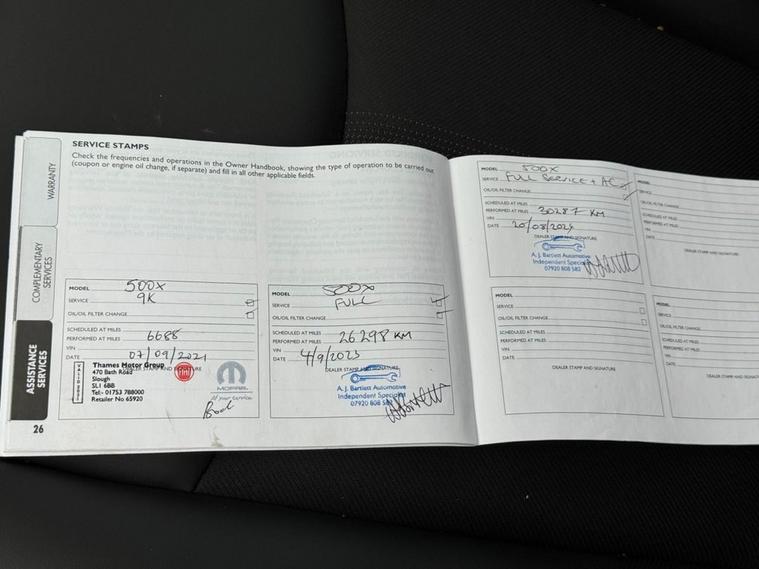 SERVICE STAMPS
Check the frequencies and operations in the Owner Handbook, showing the type of operation to be carried out
(coupon or engine oil change, if separate) and fill in all other applicable fields.
WARRANTY
COMPLEMENTARY
SERVICES
ASSISTANCE
SERVICES
MODEL 500X
SERVICE 9K
OIL/OIL FILTER CHANGE
SCHEDULED AT MILES
PERFORMED AT MILES 6688
VIN
DATE 07/09/2021
Thames Motor Group
470 Bath Road
Slough
SL1 6BB
Tel:- 01753 788000
Retailer No 65920
FIAT
MOPAR
at your service
MODEL 500X
SERVICE FULL
OIL/OIL FILTER CHANGE
SCHEDULED AT MILES
PERFORMED AT MILES 26298 KM
VIN
DATE 4/9/2023
DEALER STAMP AND SIGNATURE
A. J. Bartlett Automotive
Independent Specialist
07920 808 582
26
MODEL 500X
SERVICE FULL SERVICE + AC
OIL/OIL FILTER CHANGE
SCHEDULED AT MILES
PERFORMED AT MILES 30287 KM
VIN
DATE 20/08/2024
DEALER STAMP AND SIGNATURE
A. J. Bartlett Automotive
Independent Specialist
07920 808 582
MODEL
SERVICE
OIL/OIL FILTER CHANGE
SCHEDULED AT MILES
PERFORMED AT MILES
VIN
DATE
DEALER STAMP AND SIGNATURE
MODEL
SERVICE
OIL/OIL FILTER CHANGE
SCHEDULED AT MILES
PERFORMED AT MILES
VIN
DATE
DEALER STAMP AND SIGNATURE
MODEL
SERVICE
OIL/OIL FILTER CHANGE
SCHEDULED AT MILES
PERFORMED AT MILES
VIN
DATE
DEALER STAMP AND SIGNATURE